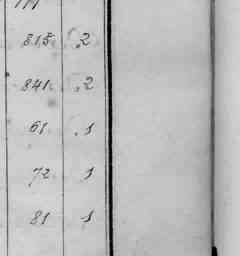 815. 2
841. 2
61. 1
72 1
81 1